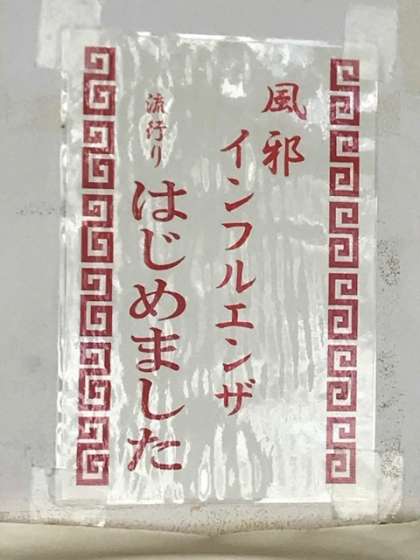 風邪
インフルエンザ
流行り
はじめました